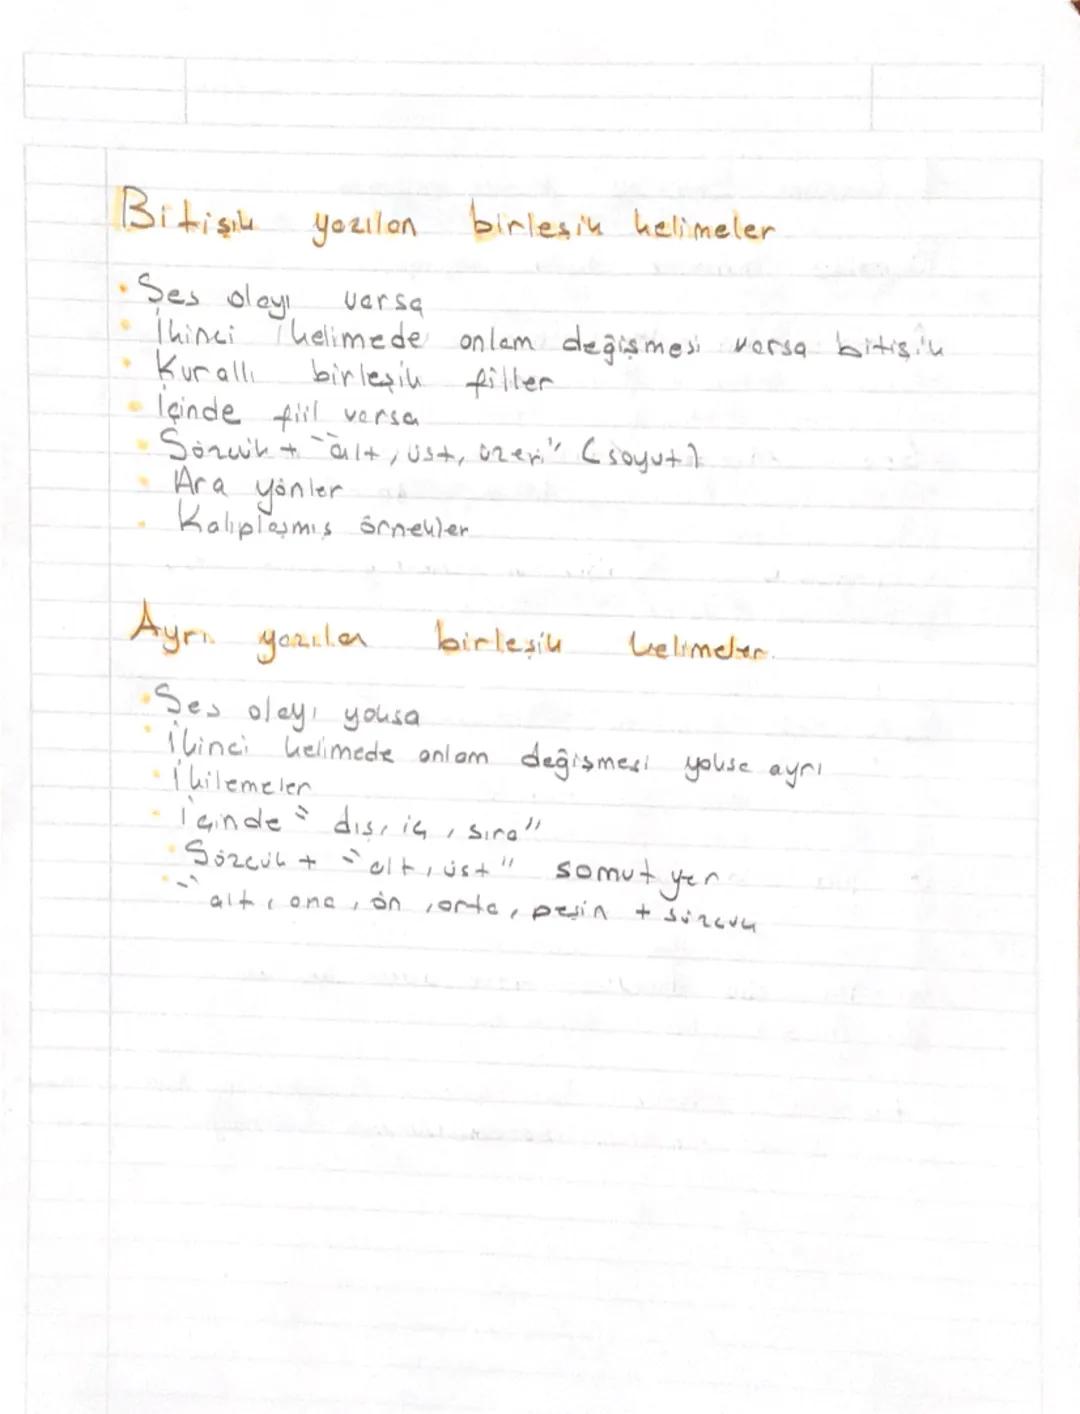 Bitişik yazılan birleşik kelimeler
• Ses olayı varsa
• İkinci kelimede anlam değişmesi varsa bitişik
• Kurallı birleşik fiiller
• İçinde fiil varsa
• Sözcük + "alt, üst, üzeri" (soyut)
• Ara yönler
• Kalıplaşmış örnekler
Ayrı yazılan birleşik kelimeler.
• Ses olayı yoksa
• İkinci kelimede anlam değişmesi yoksa ayrı
• İkilemeler
• İçinde "dış, iç, sıra"
• Sözcük + "alt, üst" somut yer
• "alt, ana, ön, orta, peşin + sözcük